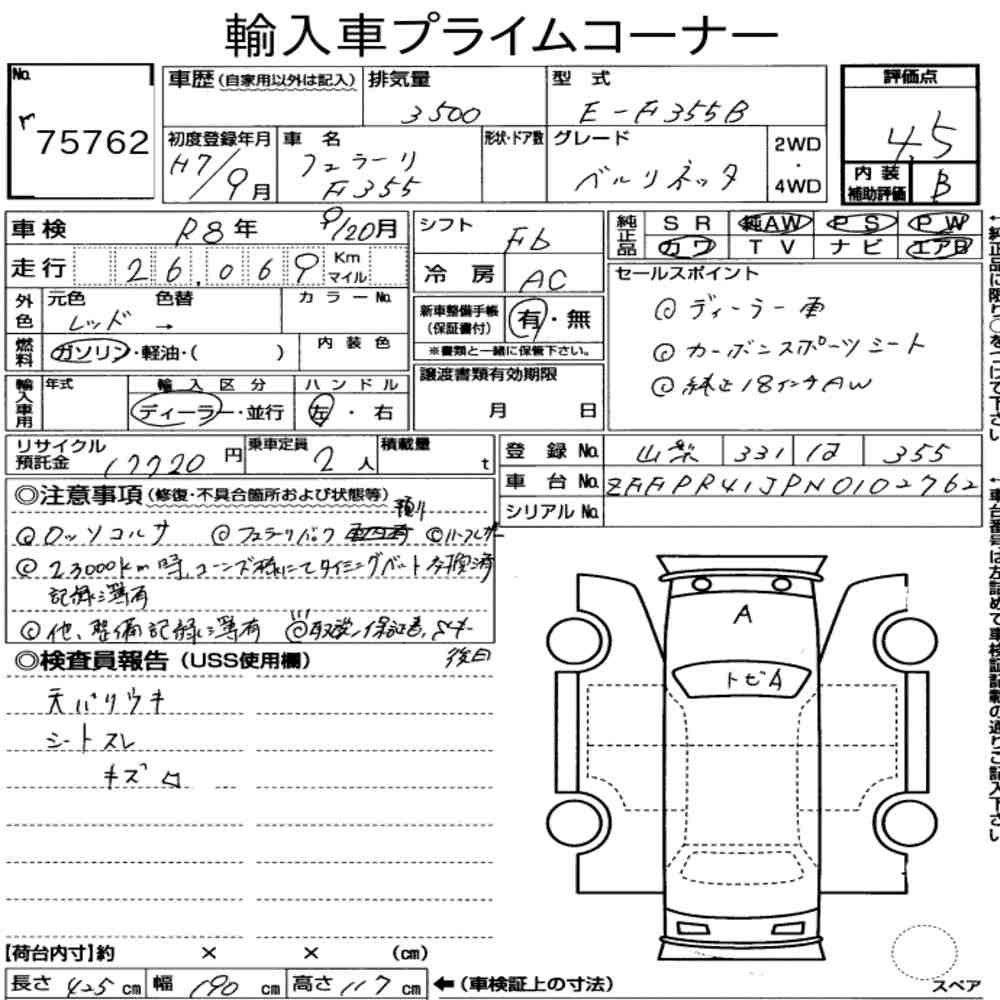 輸入車プライムコーナー
No. r 75762
車歴 (自家用以外は記入)
排気量 3500
型式 E-F355B
評価点 4.5
初度登録年月 H7/9月
車名 フェラーリ F355
形状・ドア数
グレード ベルリネッタ
2WD・4WD
内装補助評価 B
車検 R8年 9/20月
シフト F6
純正品 SR 純AW PS PW
カワ TV ナビ エアB
走行 26,069 Km マイル
冷房 AC
セールスポイント
◎ディーラー車
◎カーボンスポーツシート
◎純正18インチAW
外色 元色 レッド → 色替 カラーNo.
新車整備手帳 (保証書付) 有・無
※書類と一緒に保管下さい。
燃料 ガソリン・軽油・( )
内装色
譲渡書類有効期限 月 日
輸入車用 年式
輸入区分 ディーラー・並行
ハンドル 左・右
リサイクル預託金 17720円
乗車定員 2人
積載量 t
登録No. 山梨 331 は 355
車台No. ZFFPR41JPN0102762
シリアルNo.
◎注意事項 (修復・不具合箇所および状態等)
◎ロッソコルサ ◎フェラーリパック
◎23000km時、コーンズ様にてタイミングベルト交換済
記録簿有
◎他、整備記録簿有 ◎取説、保証書、
後日
◎検査員報告 (USS使用欄)
天バリウキ
シートスレ
キズ
A
トビA
【荷台内寸】約 × × (cm)
長さ 425 cm 幅 190 cm 高さ 117 cm ←(車検証上の寸法)
スペア
←純正品に限り○をつけて下さい
←車台番号は左詰めで車検証記載の通りご記入下さい